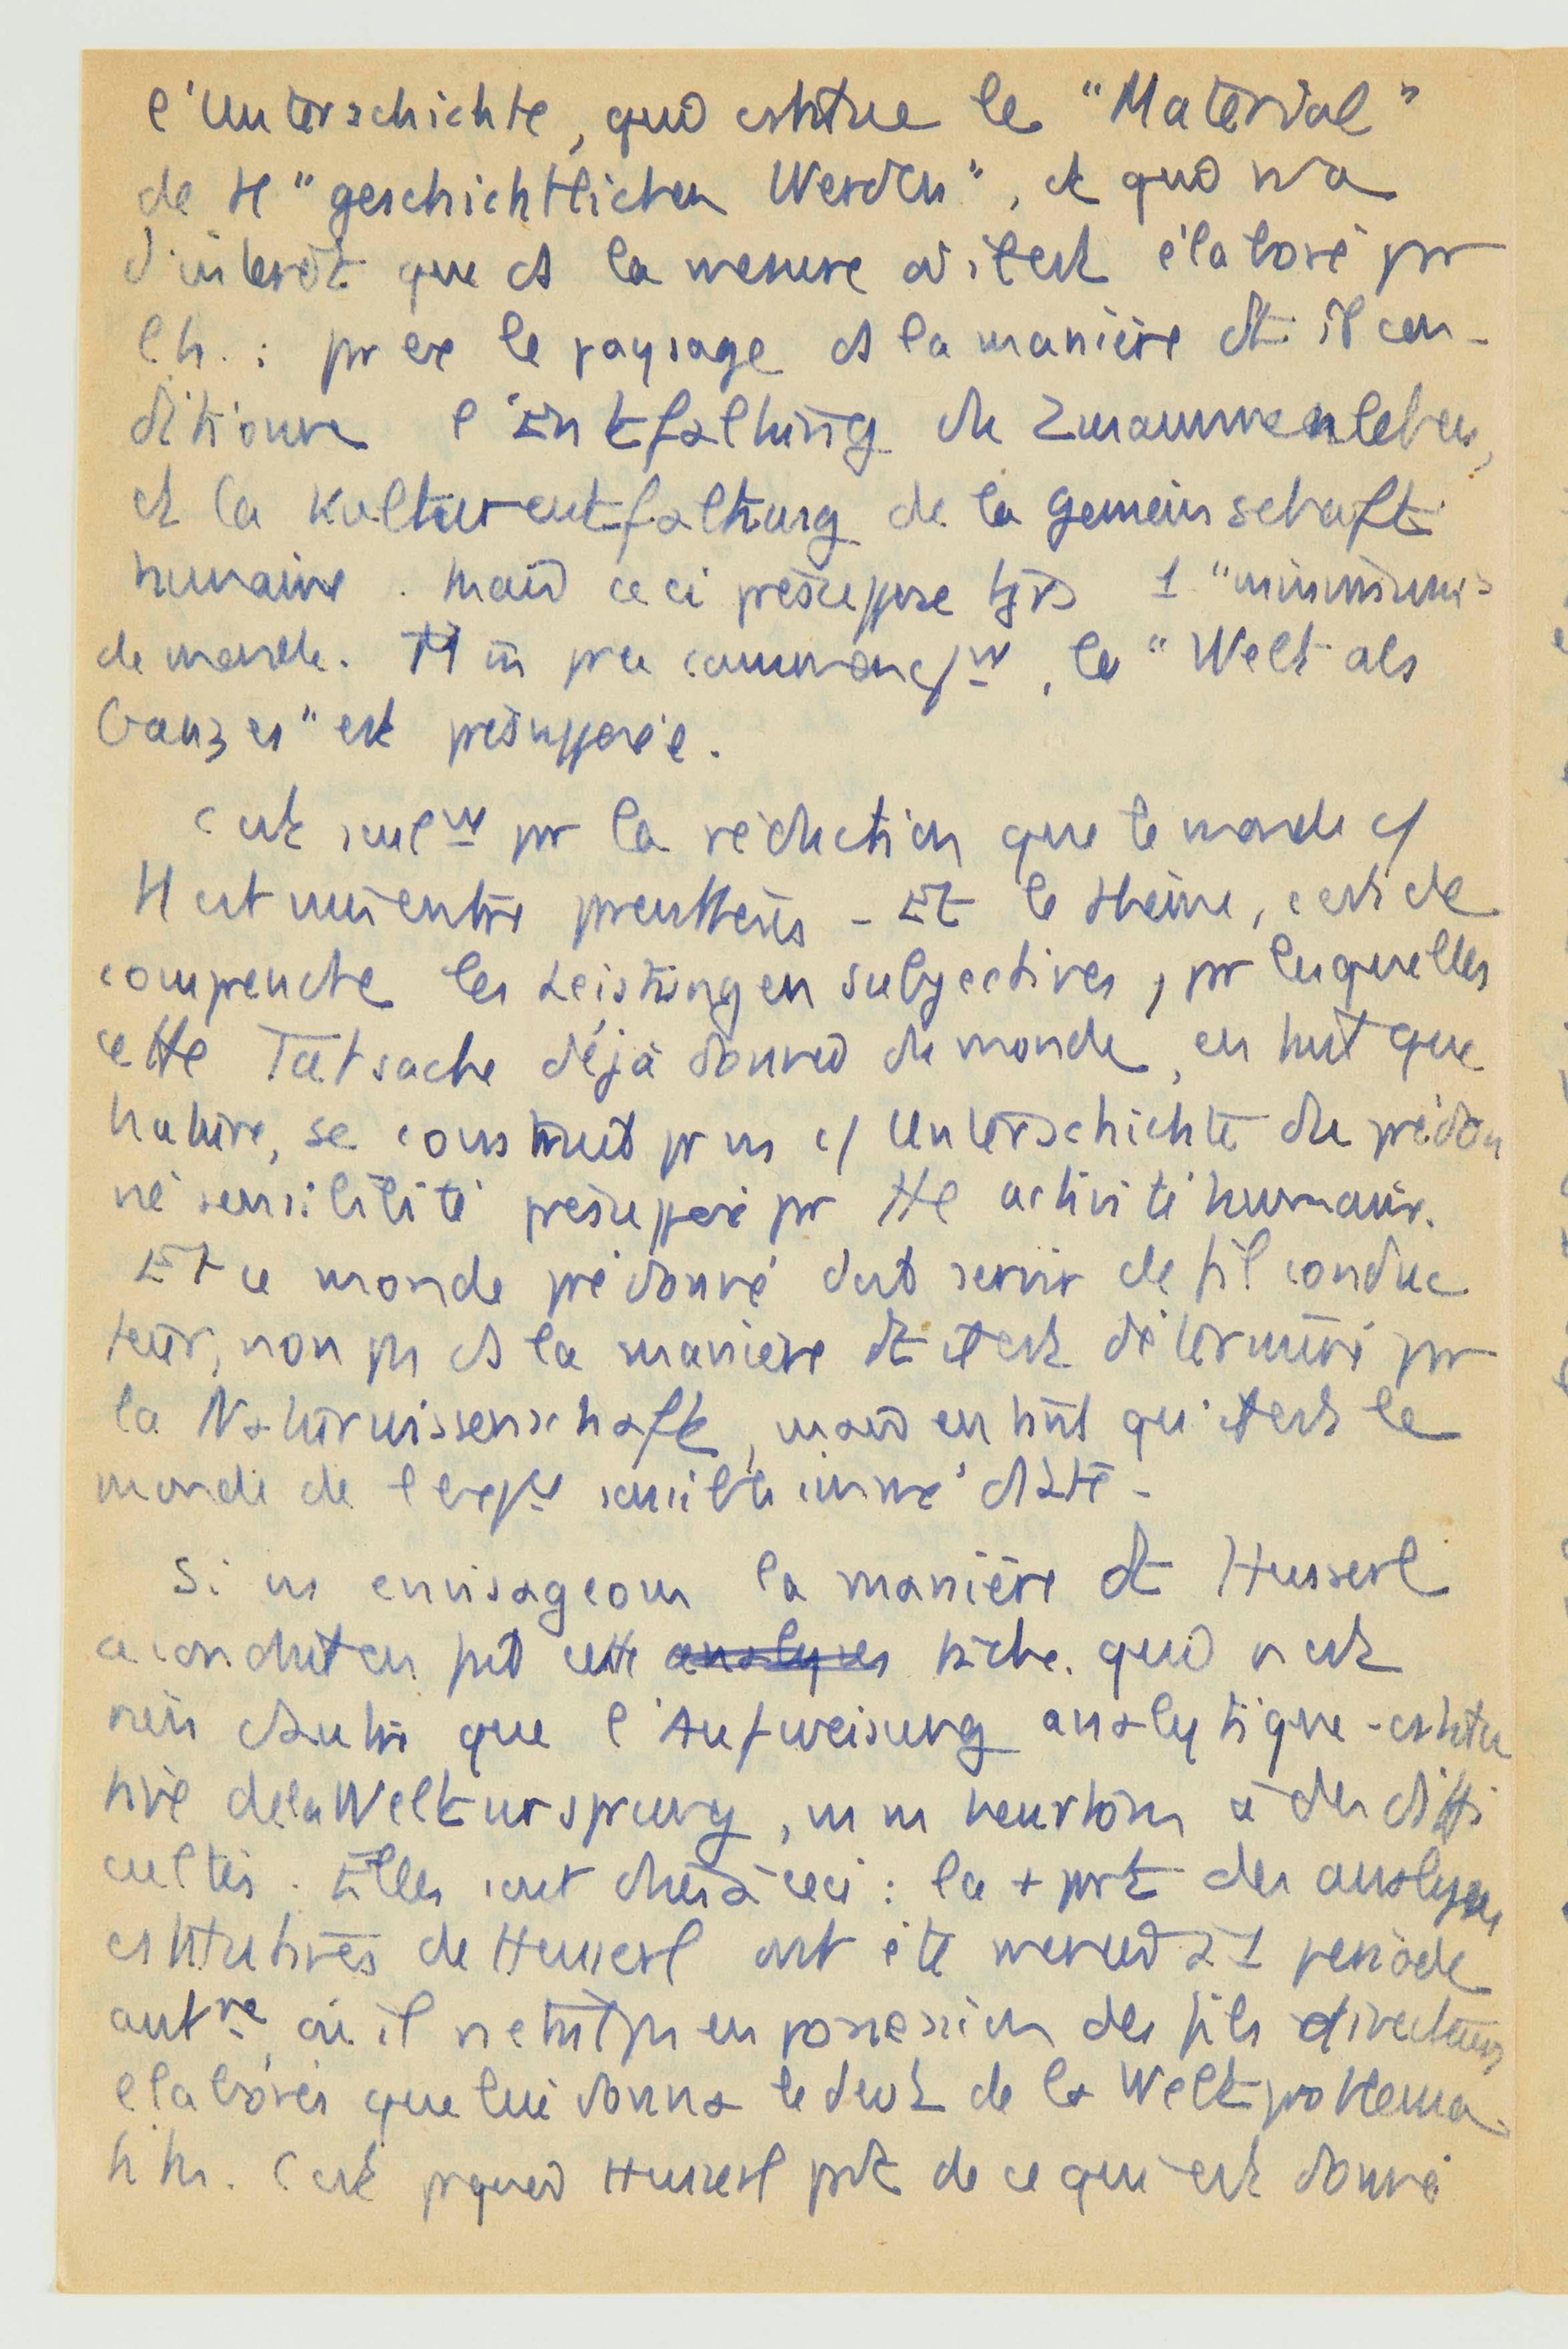 l'Unterschichte, qui cstitue le "Material"
de tt "geschichtlichen Werden", et qui n'a
d'intérêt que ds la mesure où il est élaboré pr
l'h. : pr ex le paysage ds la manière dt il con-
ditionne l'Entfaltung du Zusammenleben,
et la Kulturentfaltung de la Gemeinschaft
humaine. Mais ceci présuppose tjrs 1 "minimum"
de monde. Et un peu , la "Welt als
Ganzes" est présupposée.
C'est seulmt pr la réduction que le monde c/
tt est mis entre parenthèses - Et le thème, c'est de
comprendre les Leistungen subjectives, pr lesquelles
cette Tatsache déjà donnée du monde, en tant que
nature, se construit pr ns c/ Unterschichte du prédon
né sensibilité présupposé pr tte activité humaine.
Et ce monde prédonné doit servir de fil conduc
teur, non ps ds la manière dt il est déterminé pr
la Naturwissenschaft, mais en tant qu'il est le
monde de l'expce sensible immédiate -
Si ns envisageons la manière dt Husserl
a conduit en fait cette analyses tâche qui n'est
rien d'autre que l'Aufweisung analytique-cstitu
tive de la Weltursprung, ns ns heurtons à des diffi
cultés. Elles sont dues à ceci : la + prt des analyses
cstitutives de Husserl ont été menées à 1 période
antre, où il n'était ps en possession des fils directeurs
élaborés que lui donna le dvt de la Weltproblema
tik. C'est pquoi Husserl prt de ce qui est donné